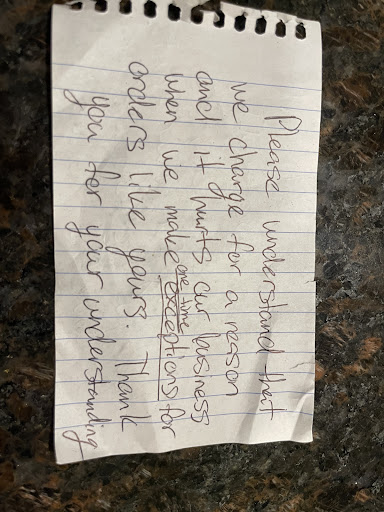 Please understand that
we charge for a reason
and it hurts our business
when we make one time exceptions for
orders like yours. Thank
you for your understanding